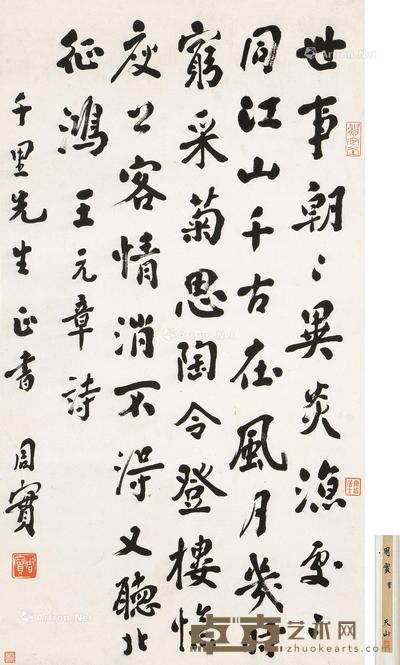 世事朝〻異炎涼處〻
同江山千古在風月幾時
窮采菊思陶令登樓憶
庾公客情消不得又聽北
征鴻王元章詩
千里先生正書 周實
周實